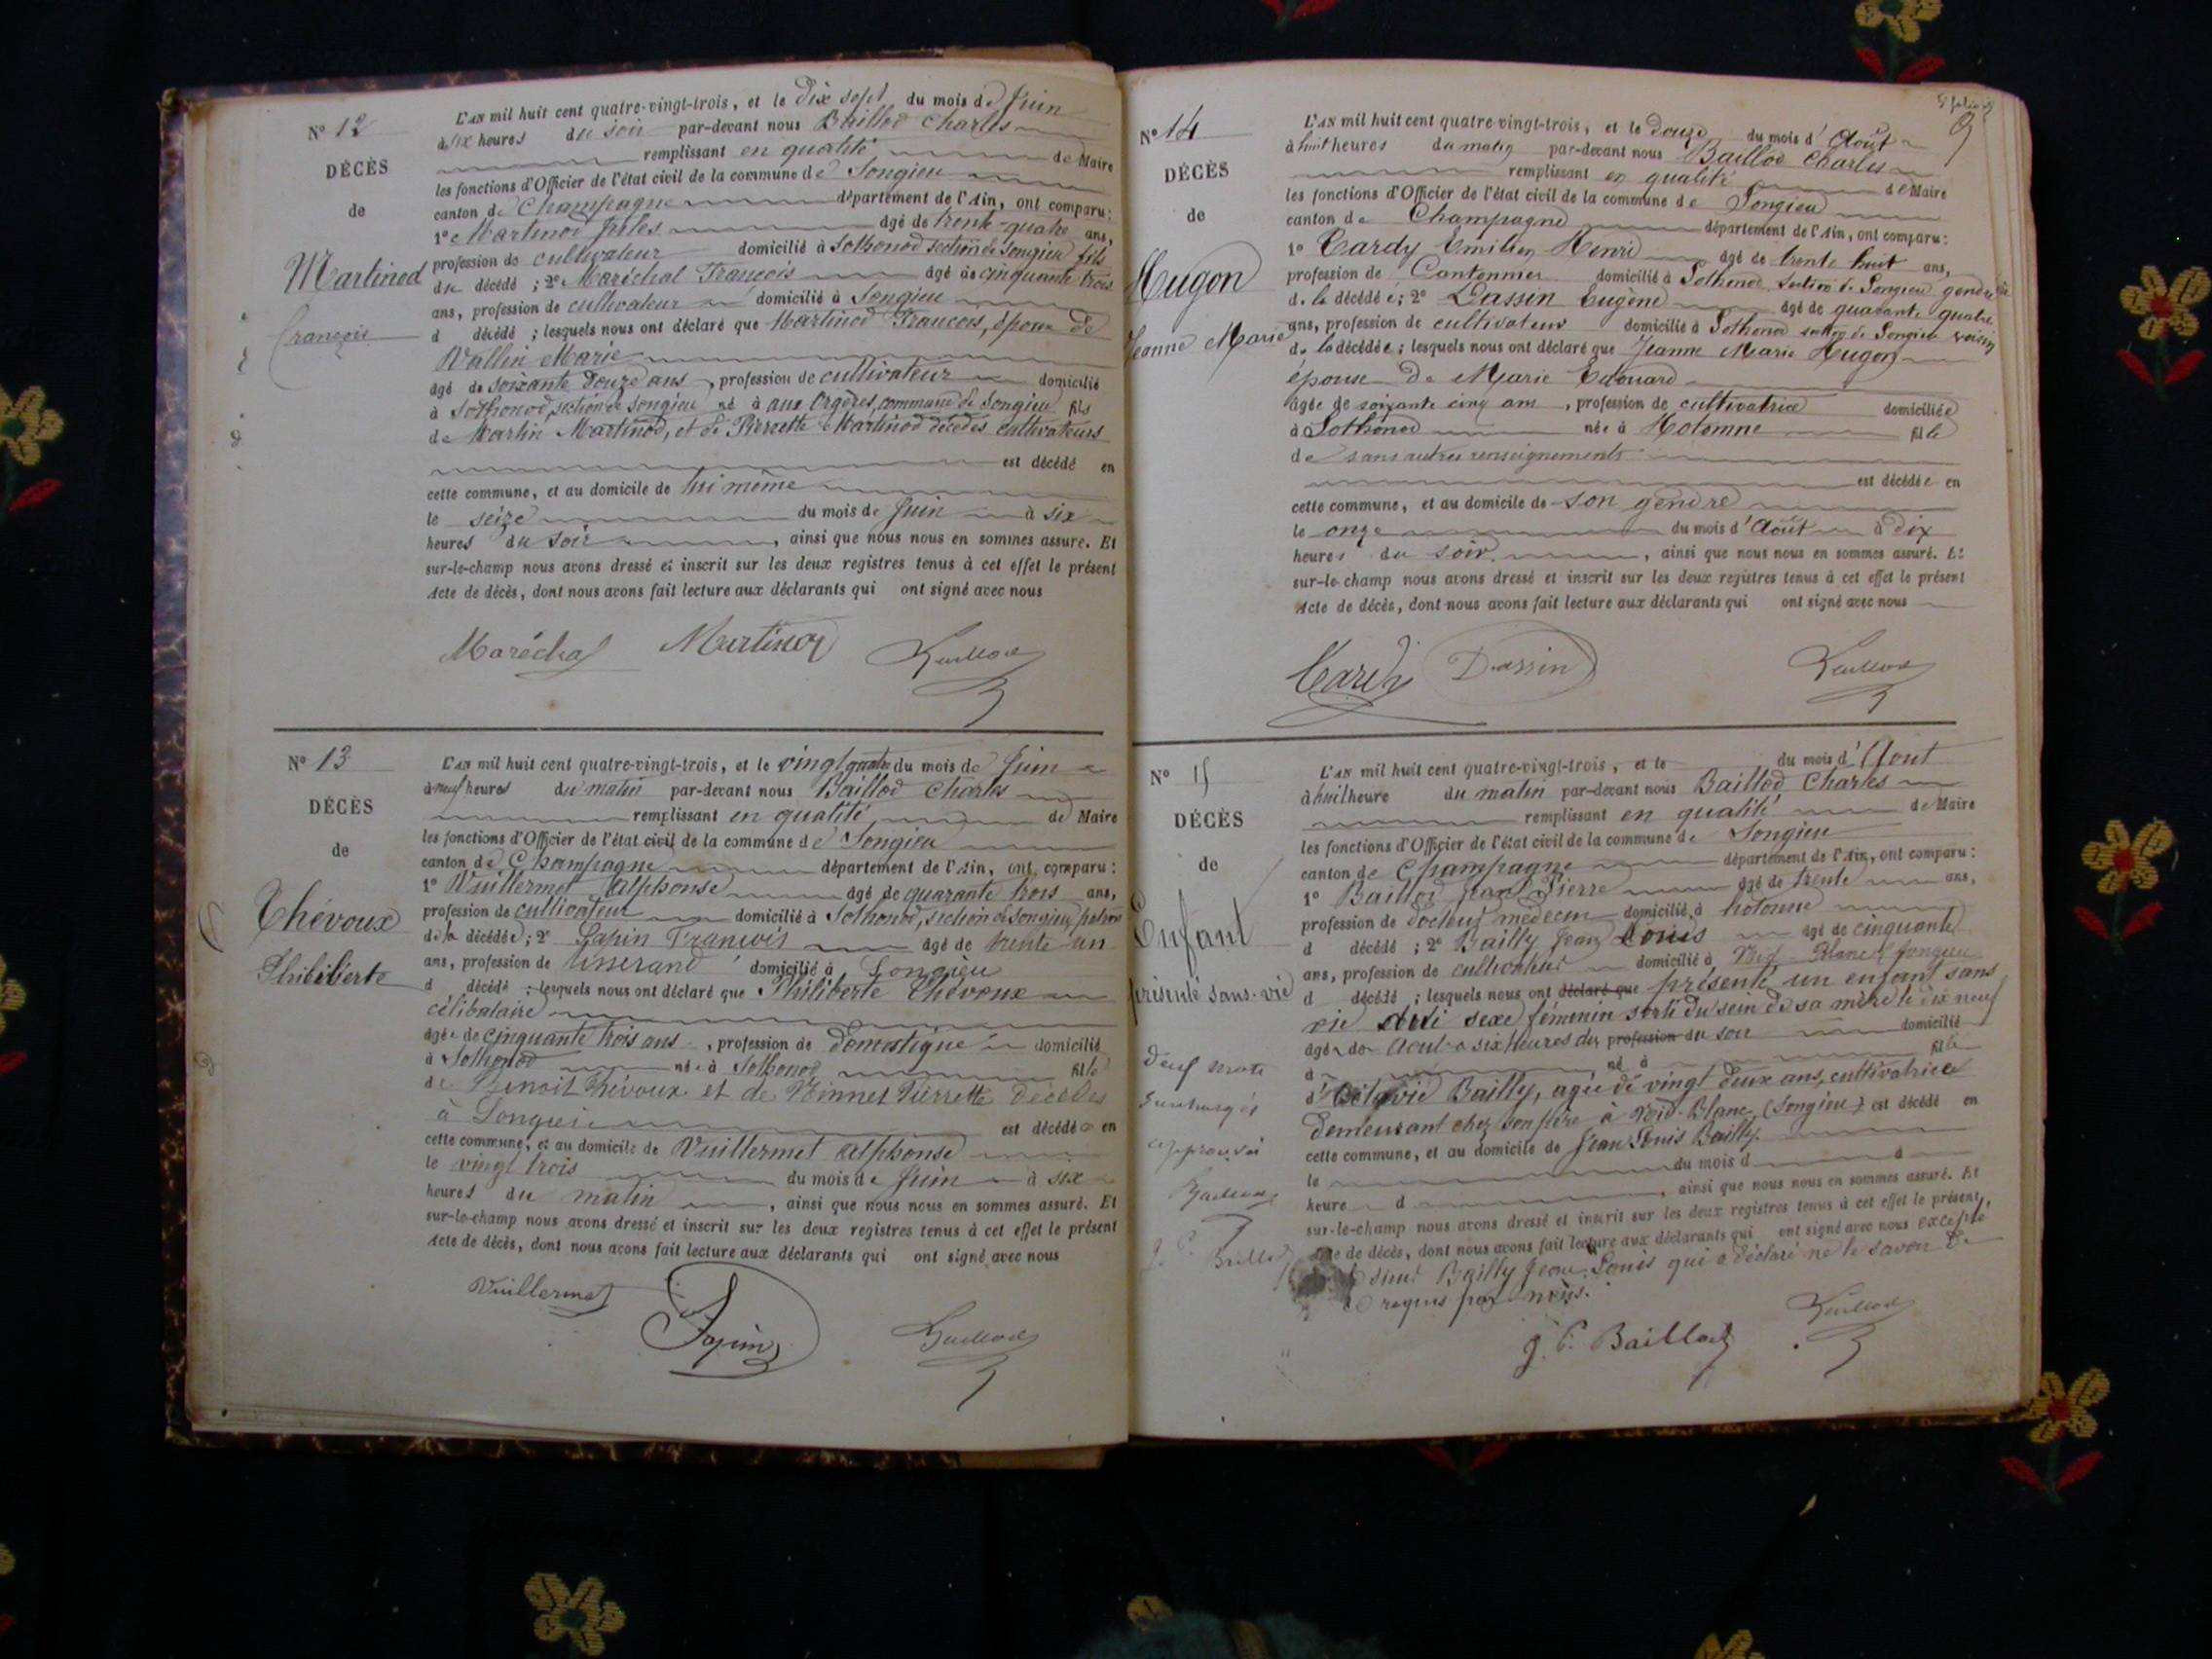 N° 12
DÉCÈS
de
Martinod
François
L'AN mil huit cent quatre-vingt-trois, et le Dix sept du mois de Juin
à six heures du soir par-devant nous Baillod Charles
remplissant en qualité de Maire
les fonctions d'Officier de l'état civil de la commune de Songieu
canton de Champagne département de l'Ain, ont comparu:
1° Martinod Jules agé de trente-quatre ans,
profession de cultivateur domicilié à Sothonod section de Songieu fils
du décédé; 2° Maréchal François agé de cinquante trois
ans, profession de cultivateur domicilié à Songieu
d décédé; lesquels nous ont déclaré que Martinod François, époux de
Vallin Marie
agé de soixante douze ans, profession de cultivateur domicilié
à Sothonod, section de Songieu né à aux Orgères, commune de Songieu fils
de Martin Martinod, et de Pierrette Martinod décédés cultivateurs
est décédé en
cette commune, et au domicile de lui même
le seize du mois de Juin à six
heures du soir, ainsi que nous nous en sommes assuré. Et
sur-le-champ nous avons dressé et inscrit sur les deux registres tenus à cet effet le présent
Acte de décès, dont nous avons fait lecture aux déclarants qui ont signé avec nous
Maréchal Martinod Baillod
N° 13
DÉCÈS
de
Thévoux
Philiberte
L'AN mil huit cent quatre-vingt-trois, et le vingt quatre du mois de Juin
à neuf heures du matin par-devant nous Baillod Charles
remplissant en qualité de Maire
les fonctions d'Officier de l'état civil de la commune de Songieu
canton de Champagne département de l'Ain, ont comparu:
1° Vuillermet Alphonse agé de quarante trois ans,
profession de cultivateur domicilié à Sothonod, section de Songieu, patron
de la décédée; 2° Lapin François agé de trente un
ans, profession de tisserand domicilié à Songieu
d décédé; lesquels nous ont déclaré que Philiberte Thévoux
célibataire
agée de cinquante trois ans, profession de domestique domicilié
à Sothonod née à Sothonod fille
de Benoit Thévoux et de Binnet Pierrette décédés
à Songieu est décédée en
cette commune, et au domicile de Vuillermet Alphonse
le vingt trois du mois de Juin à six
heures du matin, ainsi que nous nous en sommes assuré. Et
sur-le-champ nous avons dressé et inscrit sur les deux registres tenus à cet effet le présent
Acte de décès, dont nous avons fait lecture aux déclarants qui ont signé avec nous
Vuillermet Lapin Baillod
9
N° 14
DÉCÈS
de
Hugon
Jeanne Marie
L'AN mil huit cent quatre vingt-trois, et le douze du mois d'Août
à huit heures du matin par-devant nous Baillod Charles
remplissant en qualité de Maire
les fonctions d'Officier de l'état civil de la commune de Songieu
canton de Champagne département de l'Ain, ont comparu:
1° Tardy Emilien Henri agé de trente huit ans,
profession de Cantonnier domicilié à Sothonod section de Songieu gendre
de la décédée; 2° Dassin Eugène agé de quarante quatre
ans, profession de cultivateur domicilié à Sothonod section de Songieu voisin
de la décédée; lesquels nous ont déclaré que Jeanne Marie Hugon
épouse de Marie Edouard
agée de soixante cinq ans, profession de cultivatrice domiciliée
à Sothonod née à Hotonne fille
de sans autres renseignements
est décédée en
cette commune, et au domicile de son gendre
le onze du mois d'Août à dix
heures du soir, ainsi que nous nous en sommes assuré. Et
sur-le-champ nous avons dressé et inscrit sur les deux registres tenus à cet effet le présent
Acte de décès, dont nous avons fait lecture aux déclarants qui ont signé avec nous
Tardy Dassin Baillod
N° 15
DÉCÈS
de
Enfant
présenté sans-vie
Deux mots
surchargés
approuvés
Baillod
J. P. Baillod
L'AN mil huit cent quatre-vingt-trois, et le du mois d'Aout
à huit heure du matin par-devant nous Baillod Charles
remplissant en qualité de Maire
les fonctions d'Officier de l'état civil de la commune de Songieu
canton de Champagne département de l'Ain, ont comparu:
1° Baillod Jean Pierre agé de trente ans,
profession de docteur médecin domicilié à hotonne
d décédé; 2° Bailly Jean Louis agé de cinquante
ans, profession de cultivateur domicilié à Nid-Blanc Songieu
d décédé; lesquels nous ont déclaré que présenté un enfant sans
vie du sexe féminin sorti du sein de sa mère le dix neuf
agé de Aout à six heures du profession du soir domicilié
à né à fille
d'Octavie Bailly, agée de vingt deux ans, cultivatrice
demeurant chez son père à Nid-Blanc (Songieu) est décédé en
cette commune, et au domicile de Jean Louis Bailly.
le du mois d à
heure d, ainsi que nous nous en sommes assuré. Et
sur-le-champ nous avons dressé et inscrit sur les deux registres tenus à cet effet le présent
Acte de décès, dont nous avons fait lecture aux déclarants qui ont signé avec nous excepté
sieur Bailly Jean Louis qui a déclaré ne le savoir de
requis par nous.
J. P. Baillod Baillod